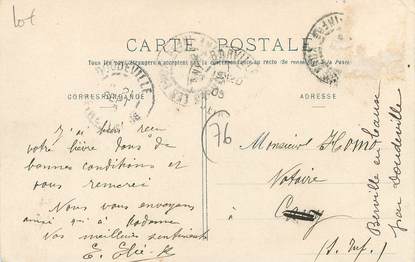 Lot
CARTE POSTALE
Tous les pays étrangers n'acceptent pas la correspondance au recto
CORRESPONDANCE
ADRESSE
DOUDEVILLE
76
J'ai bien reçu
votre lièvre dans de
bonnes conditions et
vous remerci
Nous vous envoyons
ainsi qu'à Madame
Nos meilleurs sentiments
Monsieur Homo
Notaire
à Cany
(S. Inf.)
Berville en Caux
par Doudeville